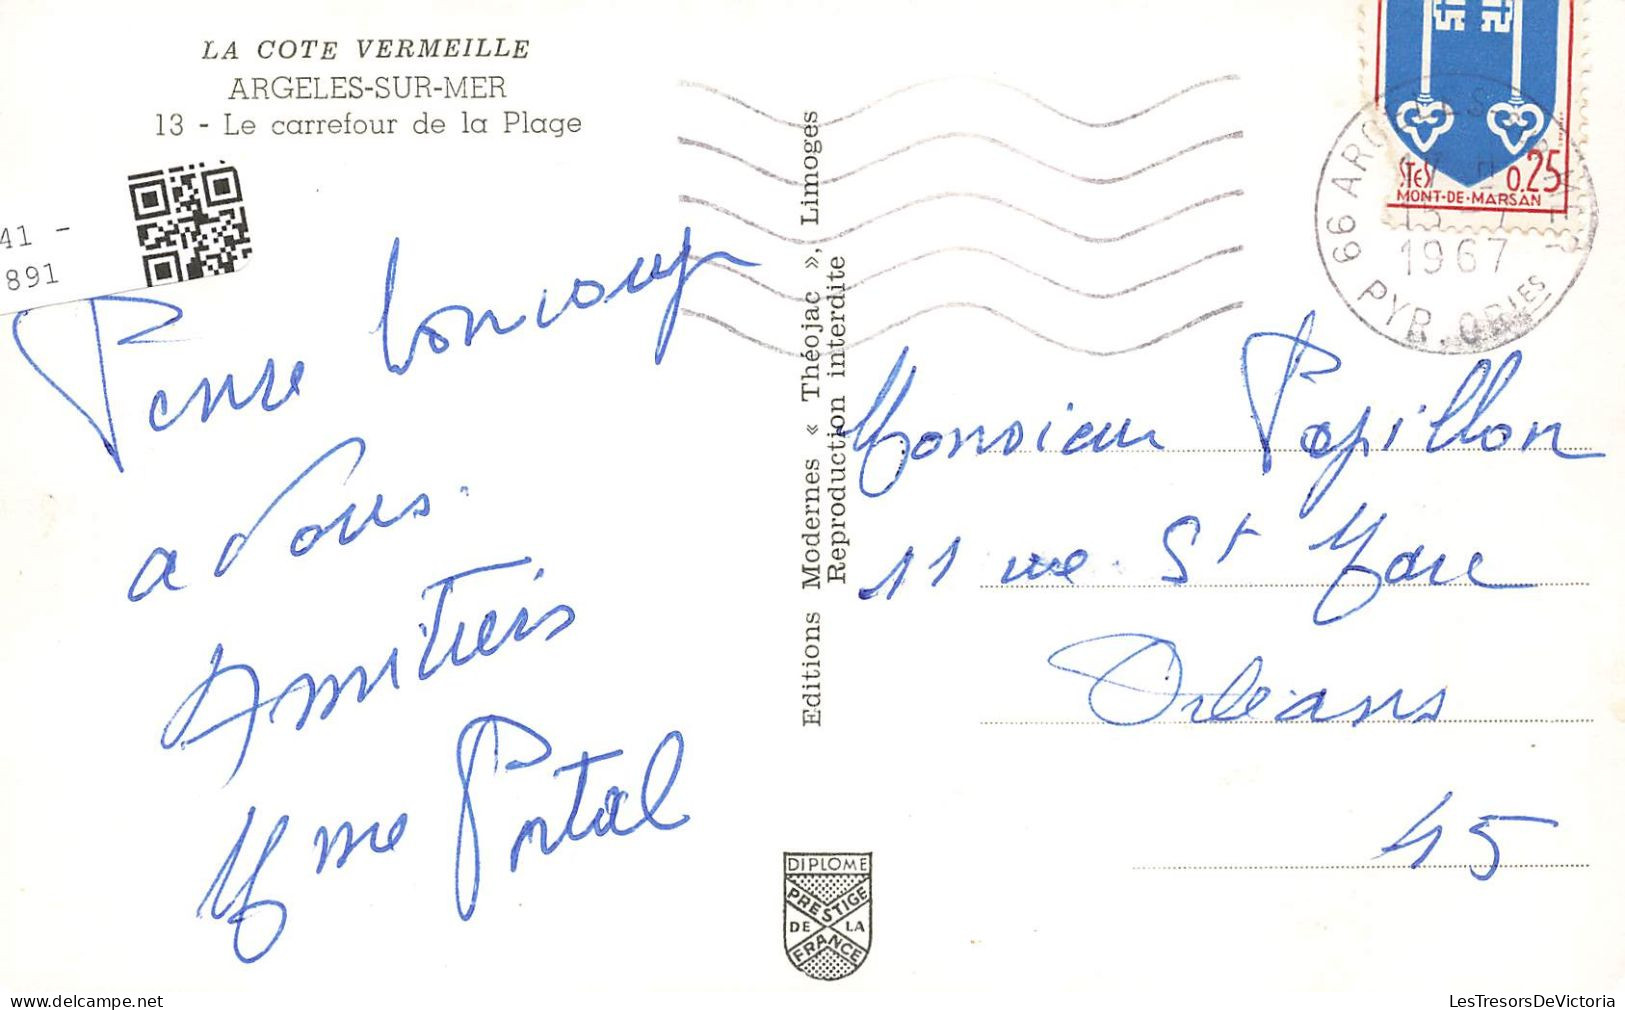 LA COTE VERMEILLE
ARGELES-SUR-MER
13 - Le carrefour de la Plage
41 -
891
Pense boncoup
a vous.
Amitieis
Mme Portal
Editions Modernes « Théojac », Limoges
Reproduction interdite
DIPLOME
PRESTIGE
DE LA
FRANCE
0.25
MONT-DE-MARSAN
15 - 7
1967
66 ARGELES S MER
PYR. ORLES
Monsieur Papillon
11 rue St Marc
Orléans
45
LesTresorsDeVictoria
www.delcampe.net